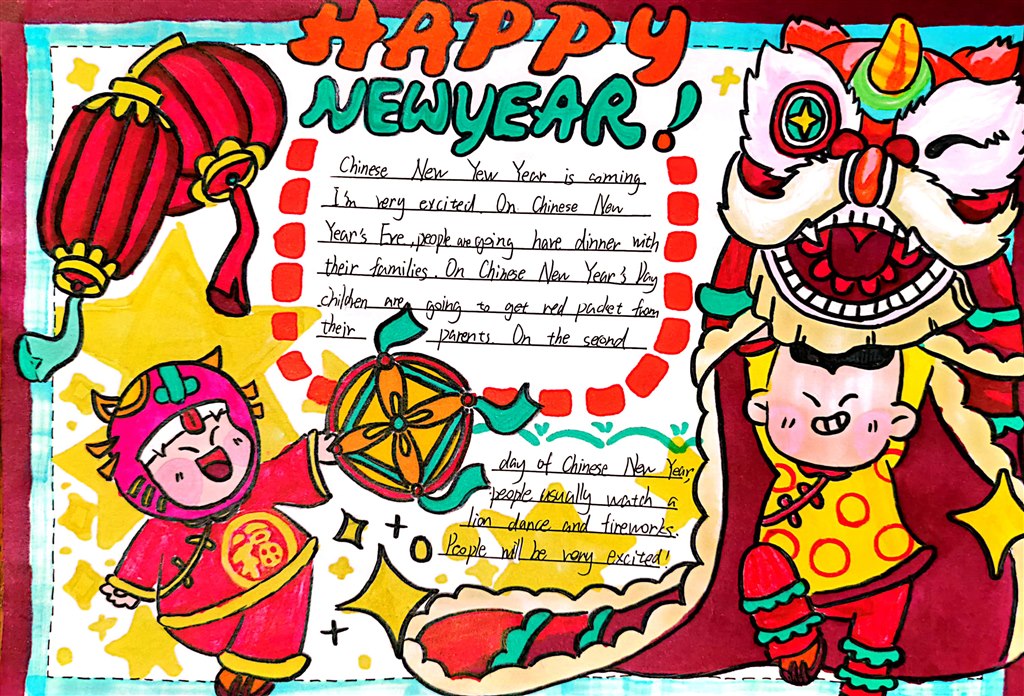 HAPPY
NEWYEAR!
Chinese New Yew Year is coming
I'm very excited. On Chinese New
Year's Eve, people are going have dinner with
their families. On Chinese New Year's Day
children are going to get red packet from
their parents. On the second
day of Chinese New Year,
people usually watch a
lion dance and fireworks.
People will be very excited!
福